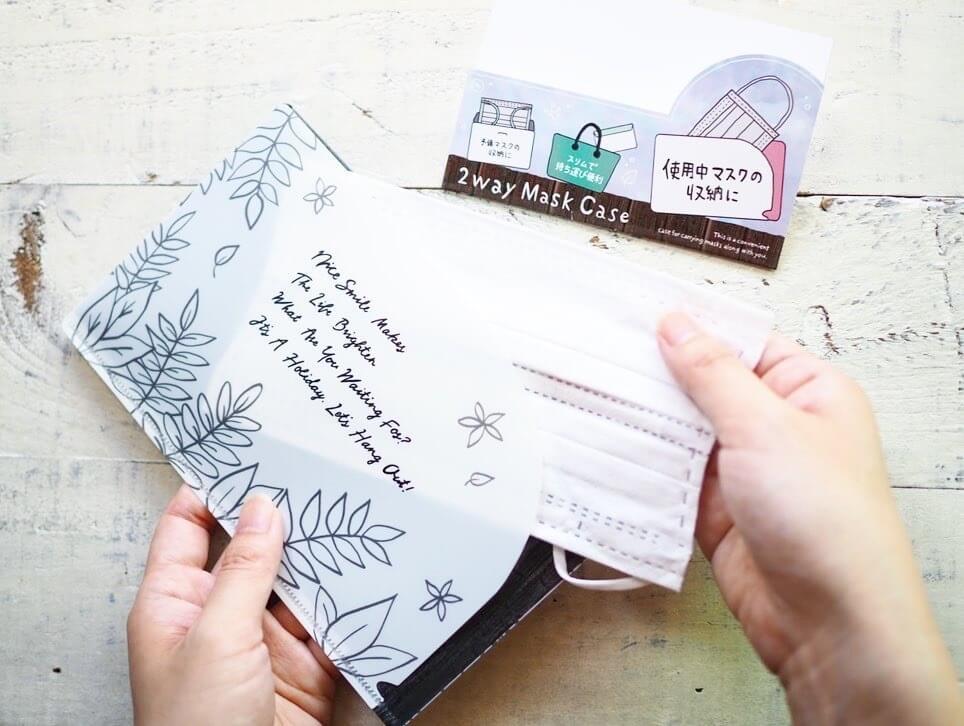 予備マスクの
収納に
スリムで
持ち運び便利
使用中マスクの
収納に
2way Mask Case
This is a convenient
case for carrying masks along with you.
Nice Smile Makes
The Life Brighter
What Are You Waiting For?
It's A Holiday. Let's Hang Out!